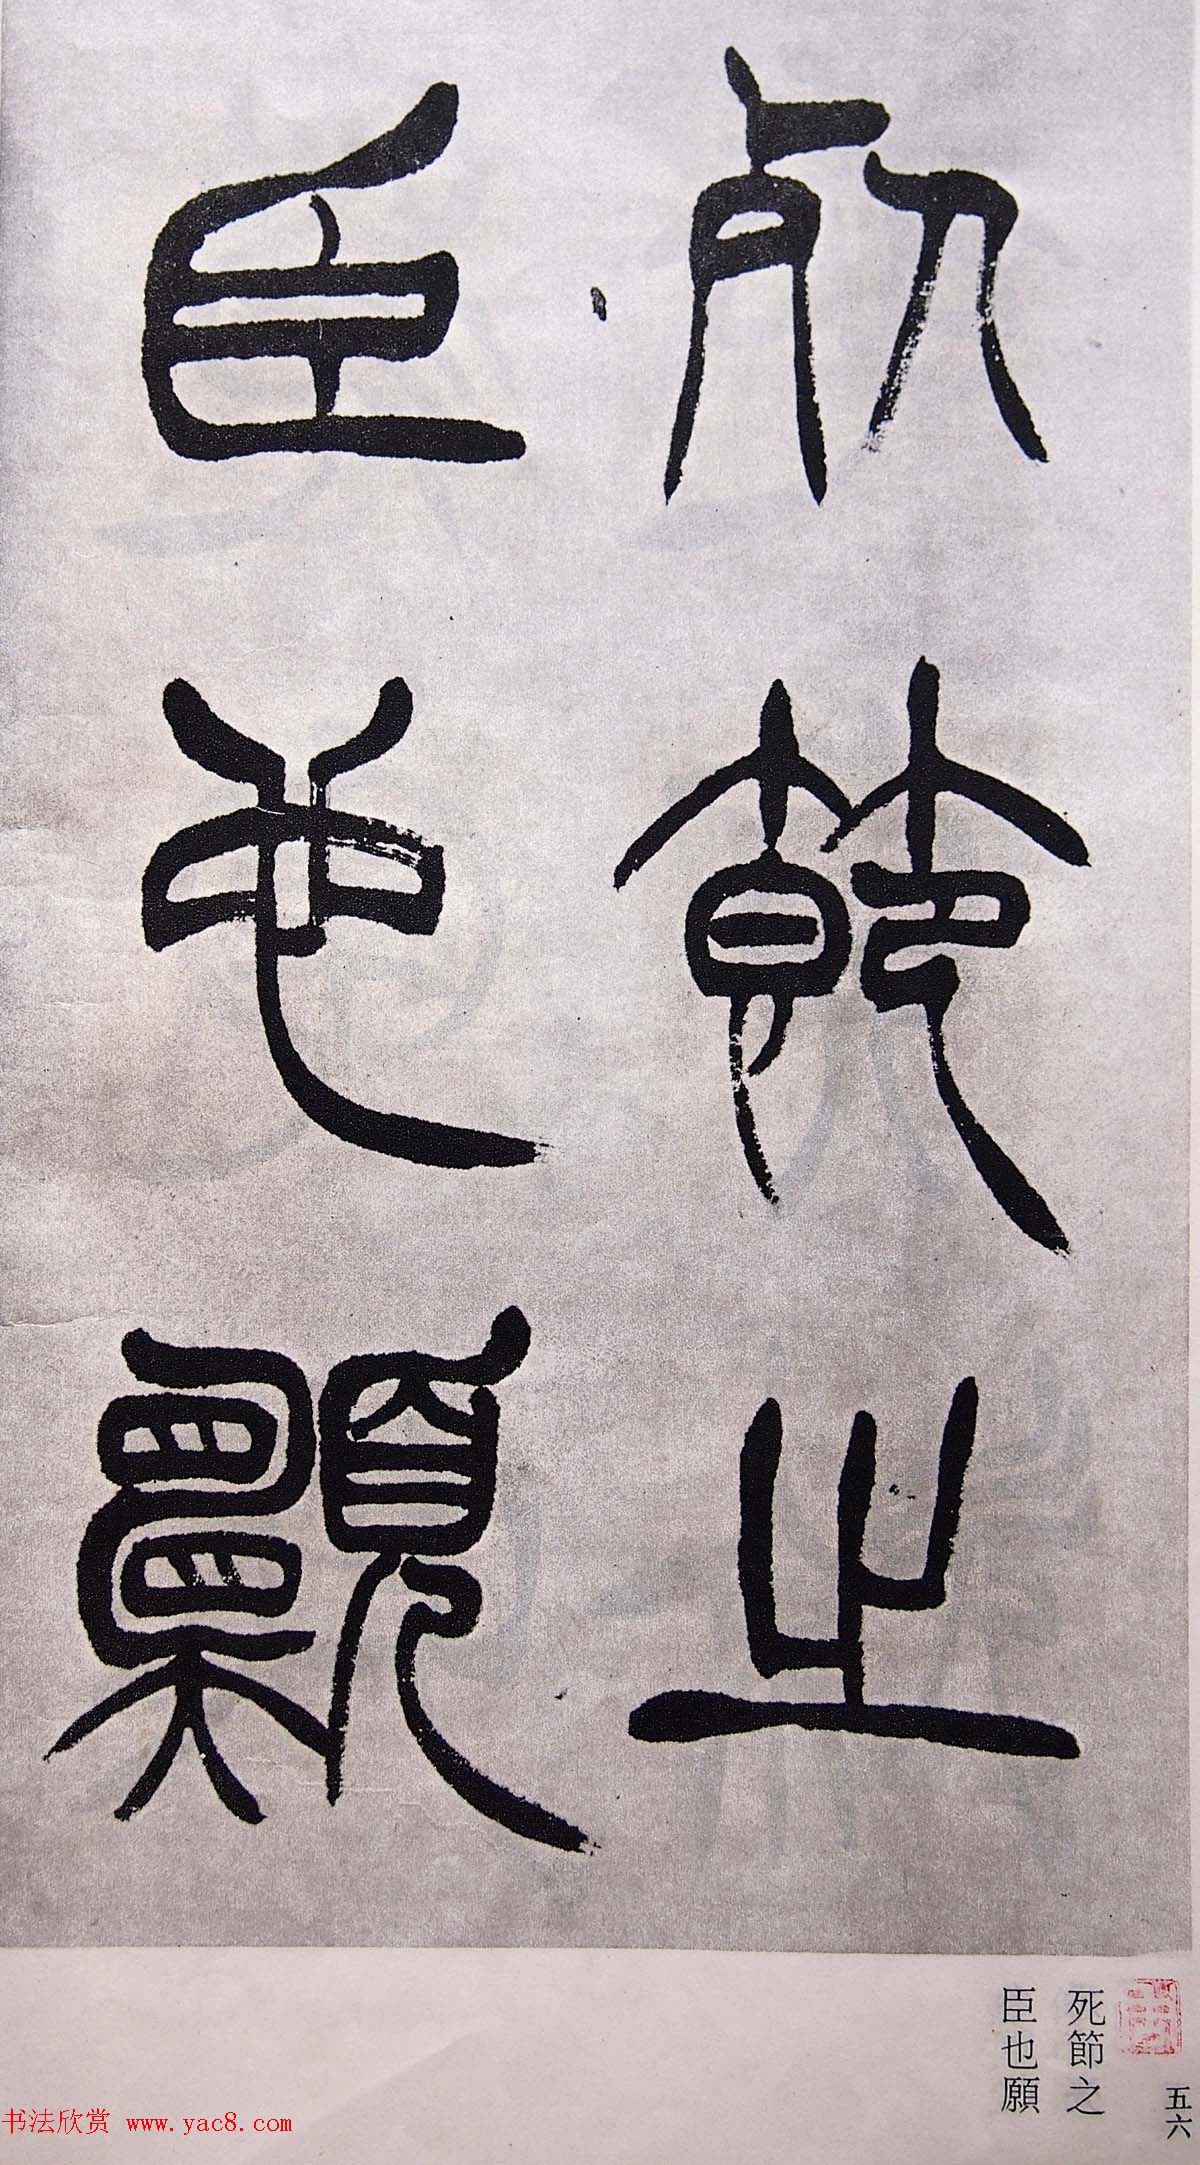 死節之
臣也願
死節之
臣也願
五六
书法欣赏 www.yac8.com